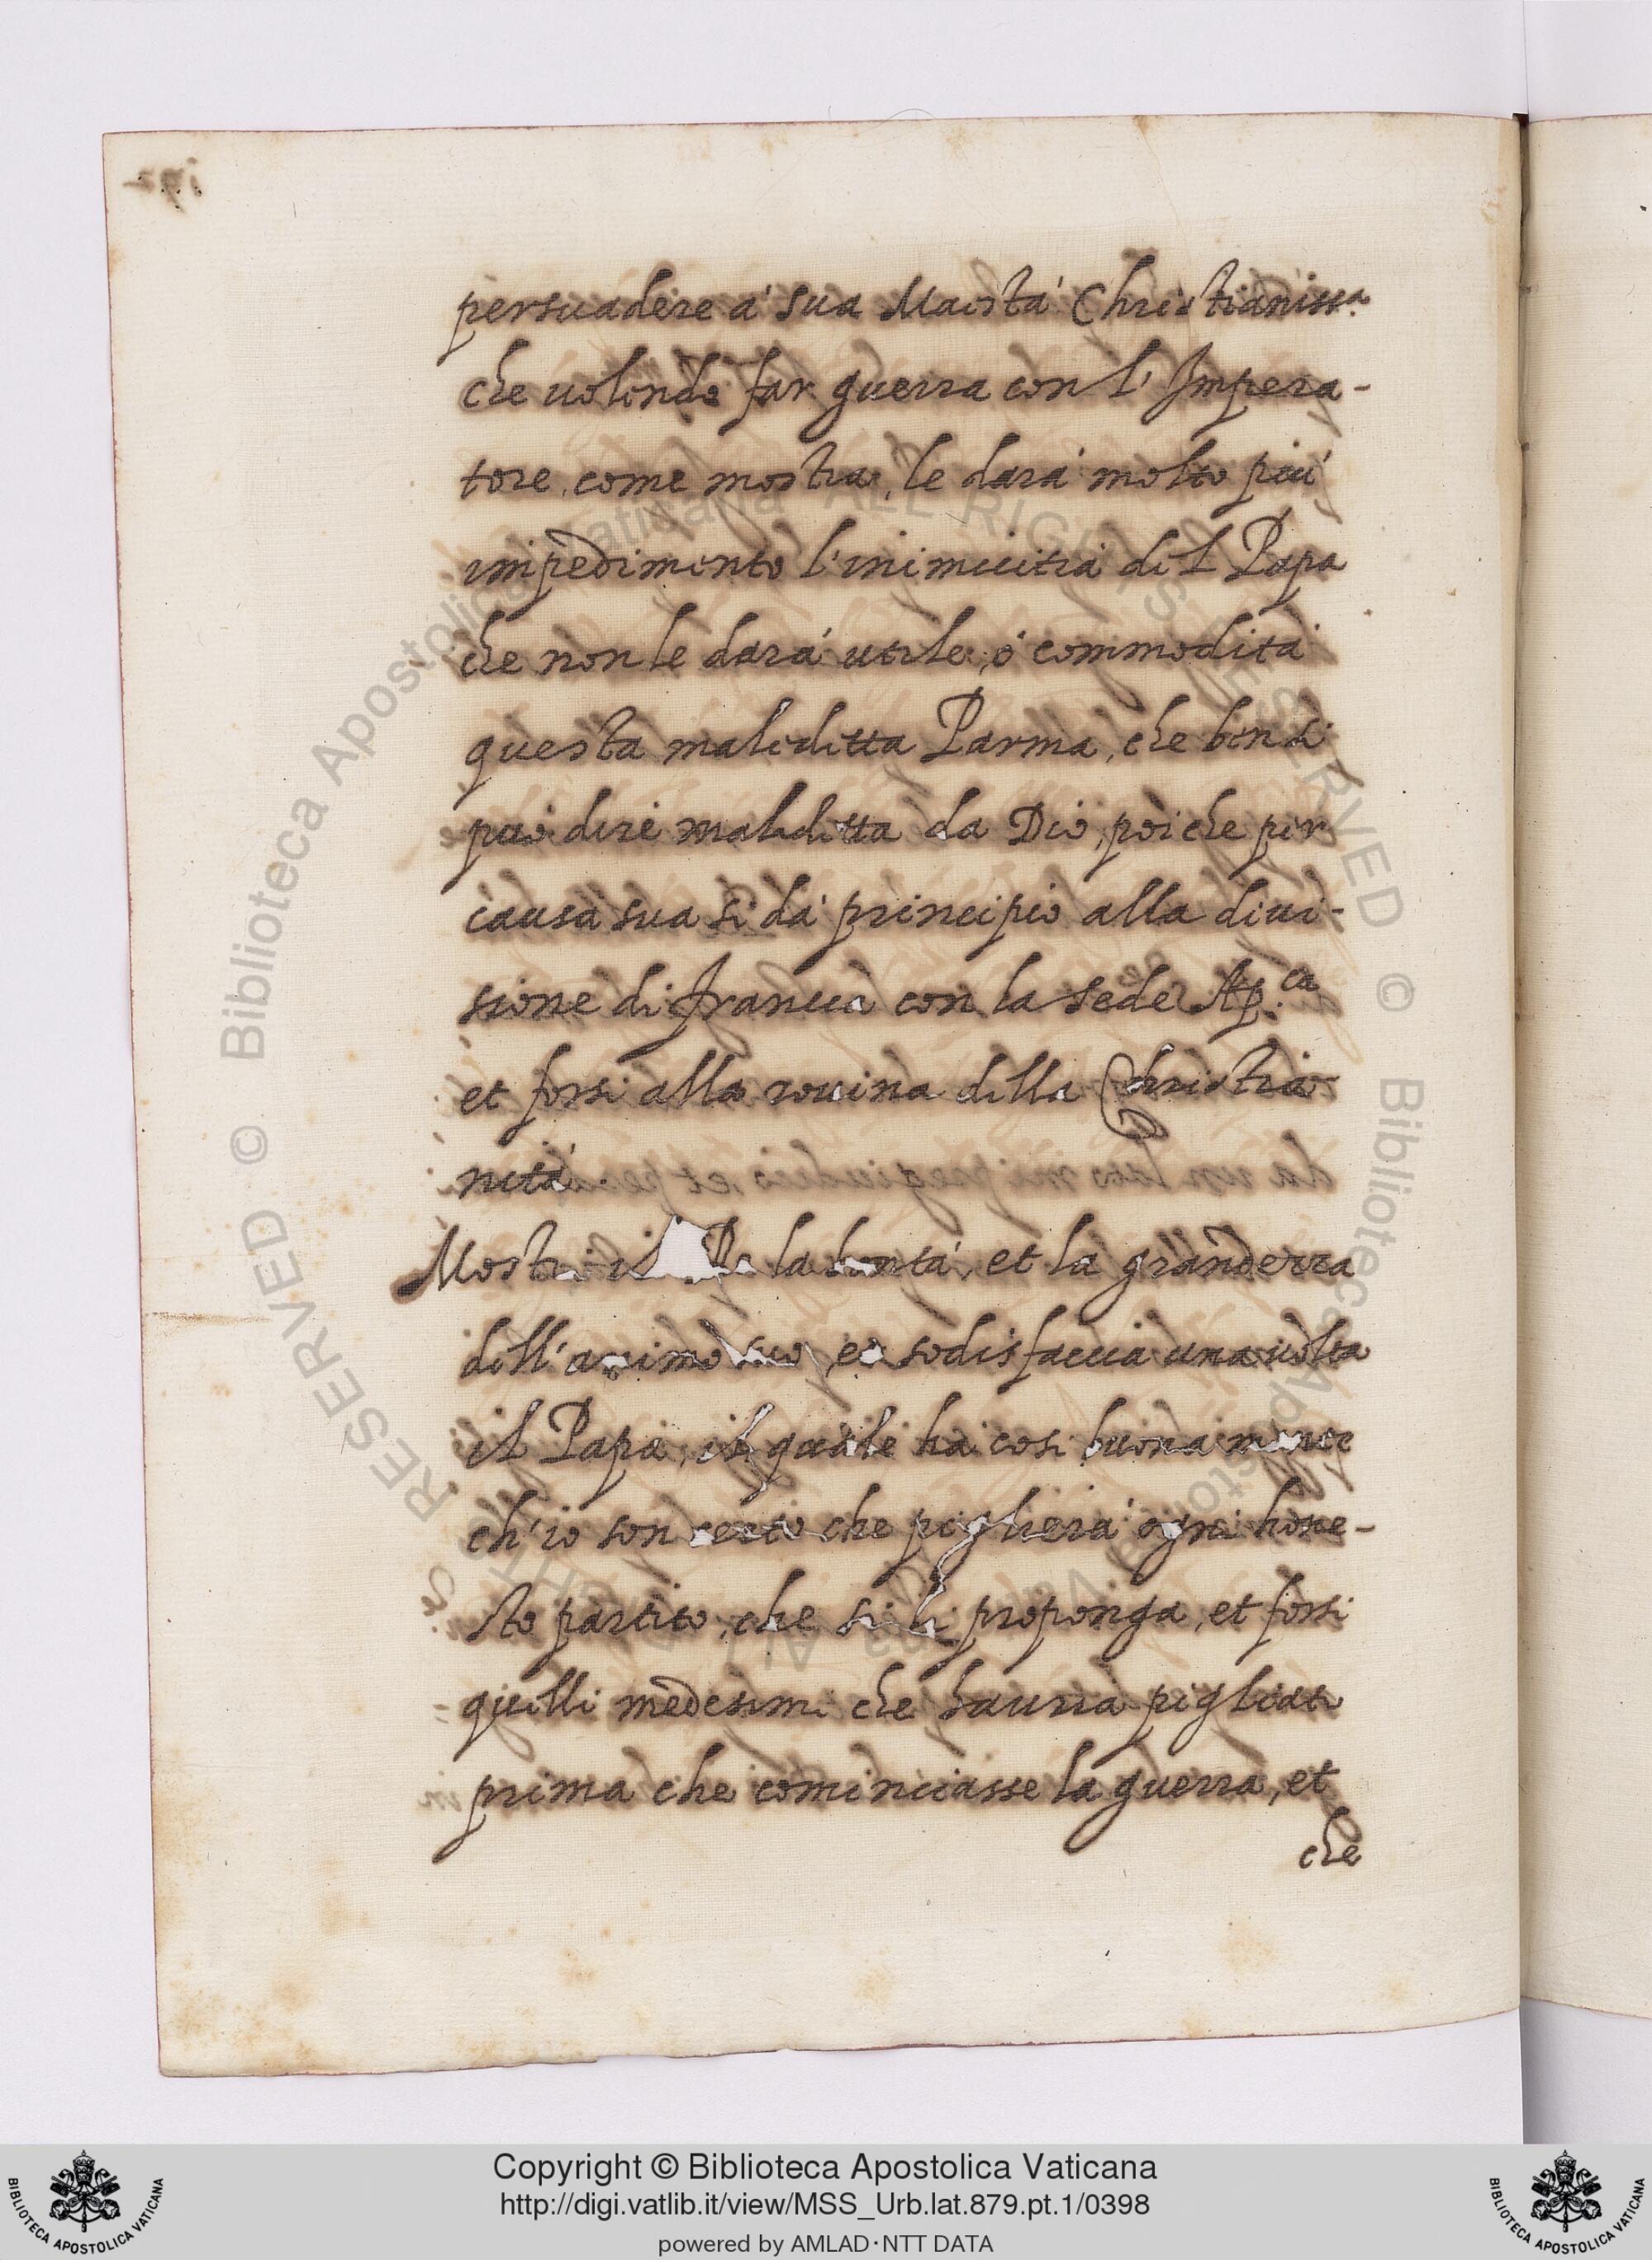 persuadere á sua Maestá Christianiss.a
che uolendo far guerra con l'Impera-
tore, come mostra, le dará molto piú
impedimento l'inimicitia del Papa
che non le dará utile, ó commoditá
questa maledetta Parma, che ben si
puó dire maledetta da Dio, poi che per
causa sua si dá principio alla diui-
sione di Francia con la sede Ap.ca
et forsi alla rouina della Christia-
nitá
Mostri il la bontá, et la grandezza
dell'animo suo, et sodisfaccia una uolta
il Papa, il quale ha cosi buona mente
ch'io son certo che pigliera' ogni hone-
sto partito, che si li proponga, et forsi
quelli medesimi che hauria pigliati
prima che cominciasse la guerra, et
che
Copyright © Biblioteca Apostolica Vaticana
http://digi.vatlib.it/view/MSS_Urb.lat.879.pt.1/0398
powered by AMLAD·NTT DATA
BIBLIOTECA APOSTOLICA VATICANA
BIBLIOTECA APOSTOLICA VATICANA